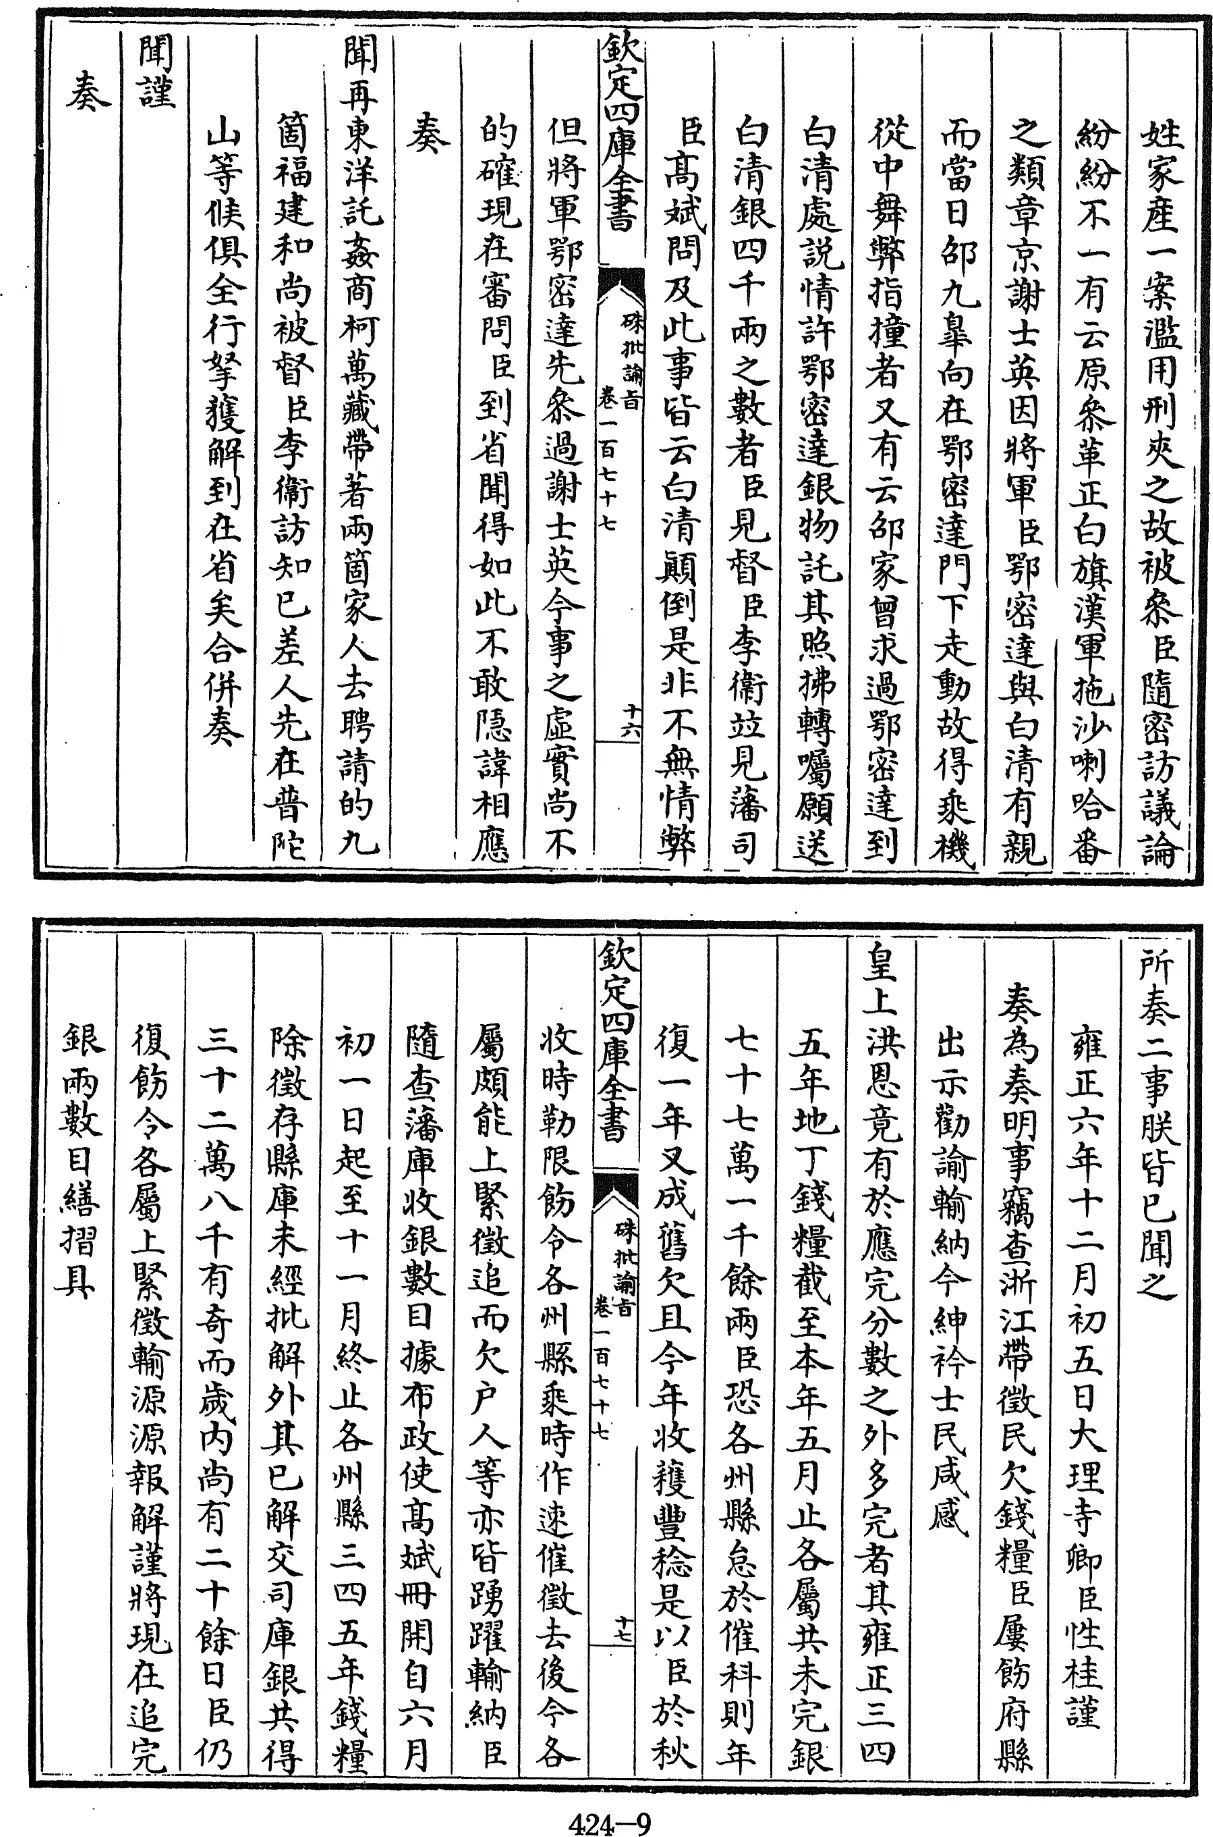 姓家産一案濫用刑夾之故被叅臣隨密訪議論
紛紛不一有云原叅革正白旗漢軍拖沙喇哈番
之類章京謝士英因將軍臣鄂密達與白清有親
而當日邵九臯向在鄂密達門下走動故得乘機
從中舞弊指撞者又有云邵家曾求過鄂密達到
白清處説情許鄂密達銀物託其照拂轉囑願送
白清銀四千兩之數者臣見督臣李衞竝見藩司
臣髙斌問及此事皆云白清顛倒是非不無情弊
欽定四庫全書
硃批諭旨
卷一百七十七
十六
但將軍鄂密達先叅過謝士英今事之虛實尚不
的確現在審問臣到省聞得如此不敢隠諱相應
奏
聞再東洋託姦商柯萬藏帶著兩箇家人去聘請的九
箇福建和尚被督臣李衞訪知已差人先在普陀
山等候俱全行拏獲解到在省矣合併奏
聞謹
奏
所奏二事朕皆已聞之
雍正六年十二月初五日大理寺卿臣性桂謹
奏為奏明事竊查浙江帶徵民欠錢糧臣屢飭府縣
出示勸諭輸納今紳衿士民咸感
皇上洪恩竟有於應完分數之外多完者其雍正三四
五年地丁錢糧截至本年五月止各屬共未完銀
七十七萬一千餘兩臣恐各州縣怠於催科則年
復一年又成舊欠且今年收穫豐稔是以臣於秋
欽定四庫全書
硃批諭旨
卷一百七十七
十七
收時勒限飭令各州縣乘時作速催徵去後今各
屬頗能上緊徵追而欠户人等亦皆踴躍輸納臣
隨查藩庫收銀數目據布政使髙斌冊開自六月
初一日起至十一月終止各州縣三四五年錢糧
除徵存縣庫未經批解外其已解交司庫銀共得
三十二萬八千有奇而歲内尚有二十餘日臣仍
復飭令各屬上緊徵輸源源報解謹將現在追完
銀兩數目繕摺具
424-9